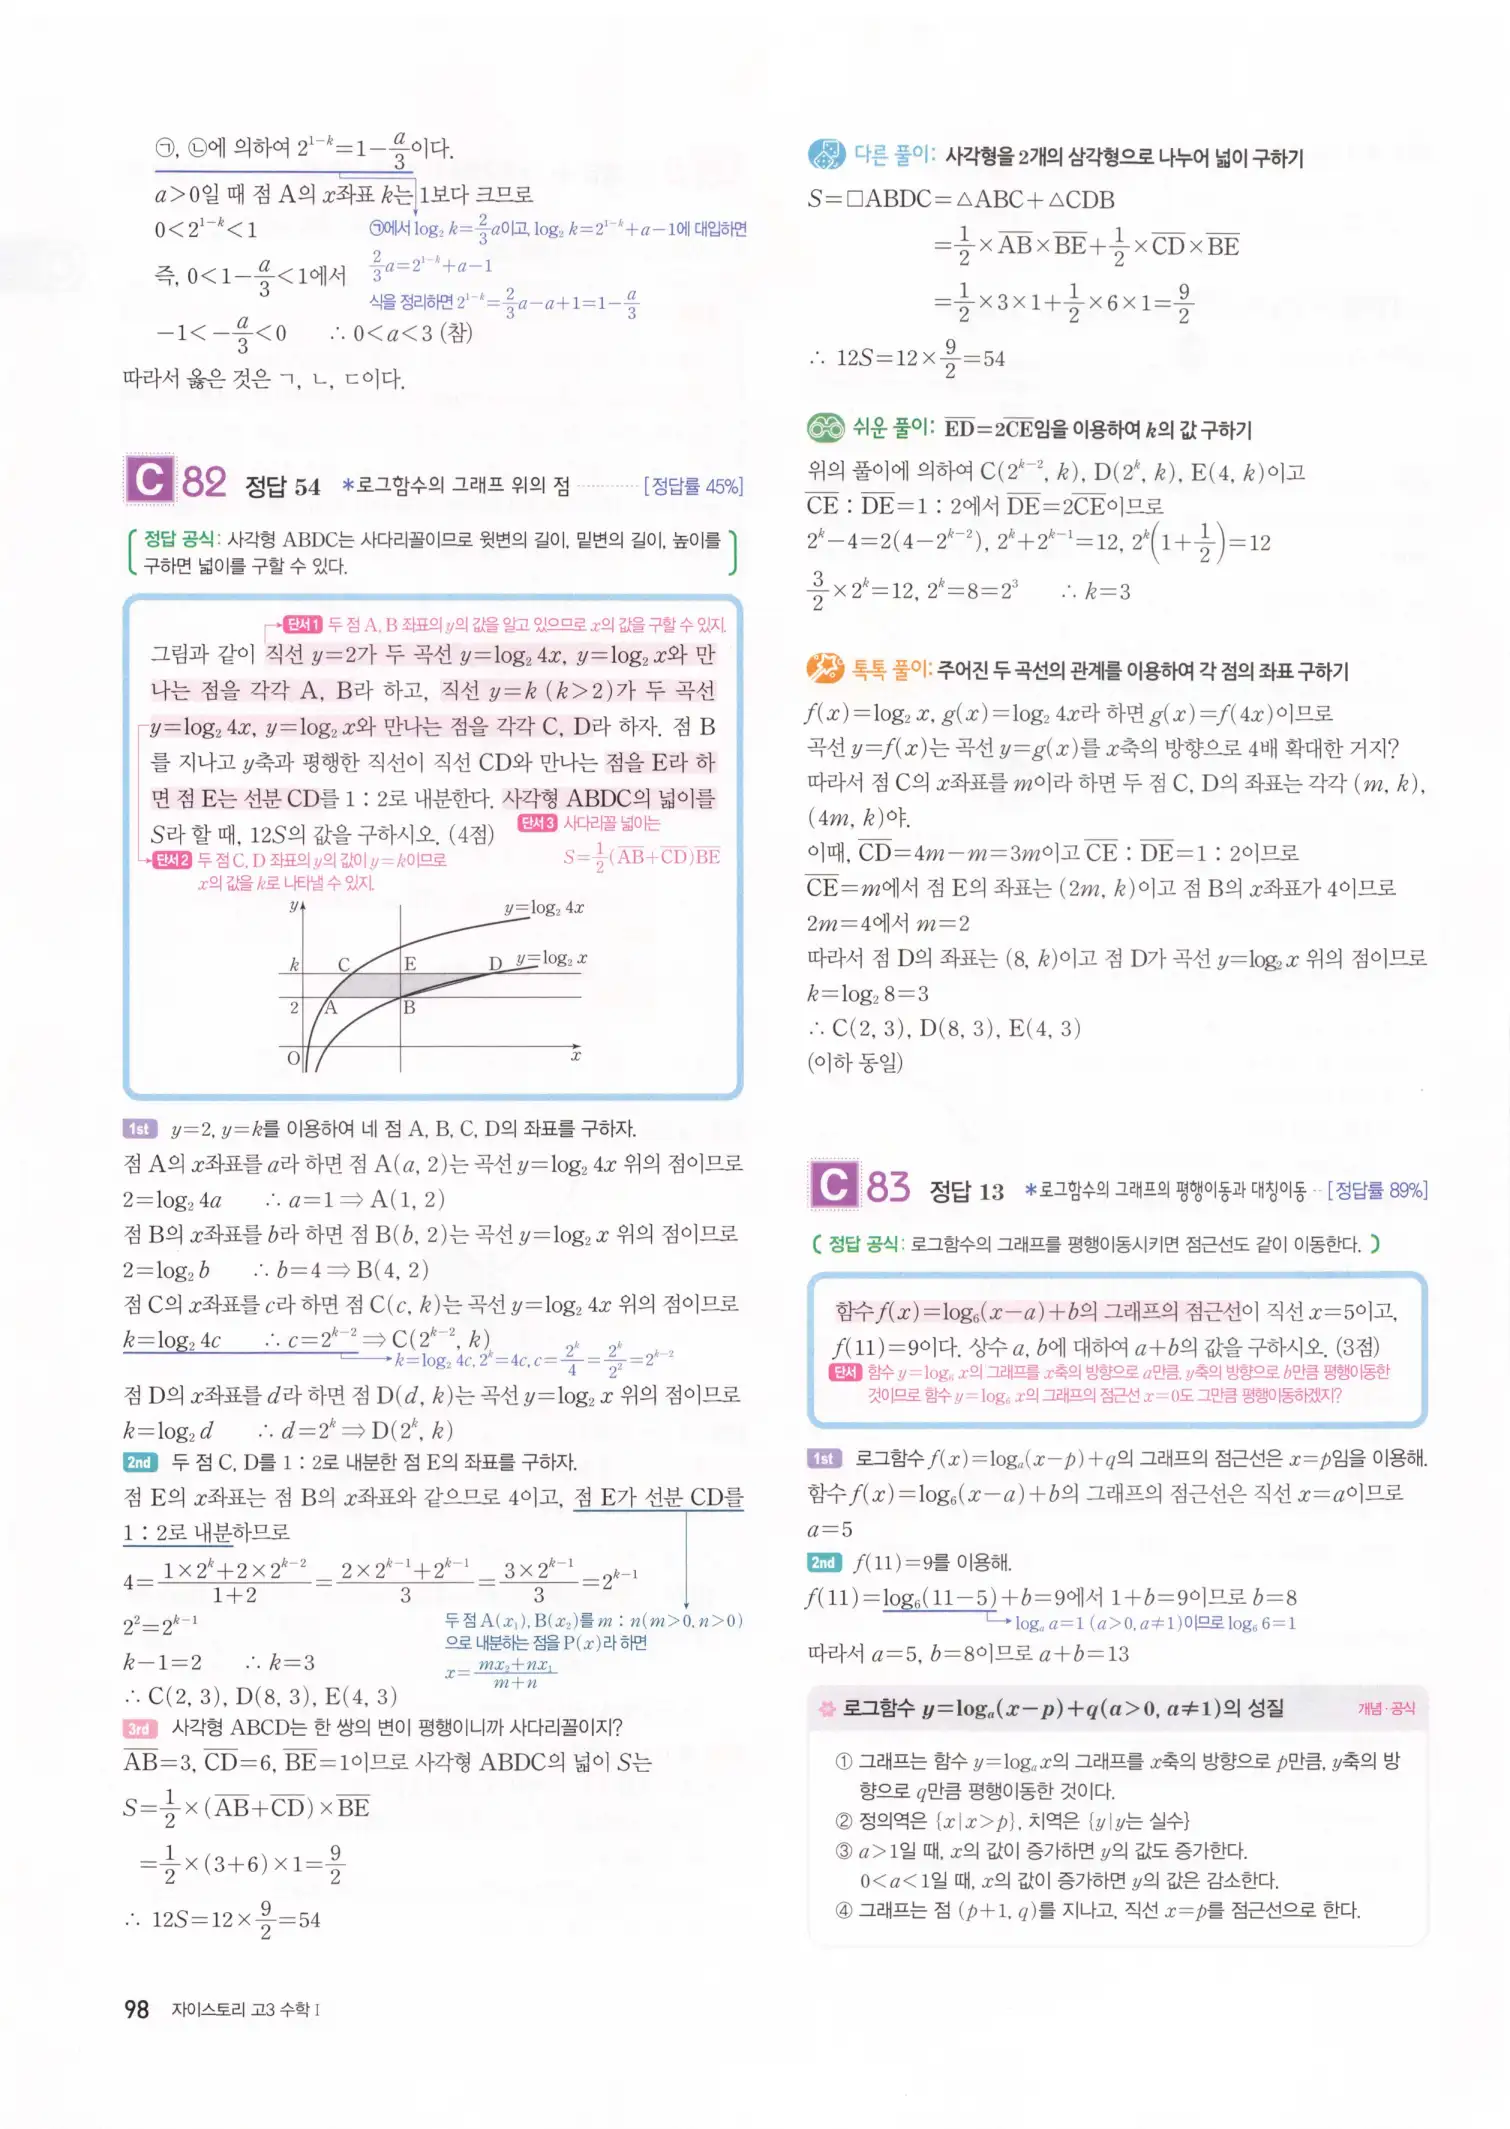 ㉠, ㉡에 의하여 2^{1-k}=1-\frac{a}{3}이다.
a>0일 때 점 A의 x좌표 k는 1보다 크므로
0<2^{1-k}<1
㉠에서 log₂ k=\frac{2}{3}a이고, log₂ k=2^{1-k}+a-1에 대입하면
\frac{2}{3}a=2^{1-k}+a-1
즉, 0<1-\frac{a}{3}<1에서
식을 정리하면 2^{1-k}=\frac{2}{3}a-a+1=1-\frac{a}{3}
-1<-\frac{a}{3}<0 ∴ 0<a<3 (참)
따라서 옳은 것은 ㄱ, ㄴ, ㄷ이다.
C 82 정답 54 *로그함수의 그래프 위의 점 [정답률 45%]
정답 공식: 사각형 ABDC는 사다리꼴이므로 윗변의 길이, 밑변의 길이, 높이를
구하면 넓이를 구할 수 있다.
단서1 두 점 A, B 좌표의 y의 값을 알고 있으므로 x의 값을 구할 수 있지.
그림과 같이 직선 y=2가 두 곡선 y=log₂ 4x, y=log₂ x와 만
나는 점을 각각 A, B라 하고, 직선 y=k (k>2)가 두 곡선
y=log₂ 4x, y=log₂ x와 만나는 점을 각각 C, D라 하자. 점 B
를 지나고 y축과 평행한 직선이 직선 CD와 만나는 점을 E라 하
면 점 E는 선분 CD를 1 : 2로 내분한다. 사각형 ABDC의 넓이를
S라 할 때, 12S의 값을 구하시오. (4점)
단서3 사다리꼴 넓이는
S=\frac{1}{2}(\overline{AB}+\overline{CD})\overline{BE}
단서2 두 점 C, D 좌표의 y의 값이 y=k이므로
x의 값을 k로 나타낼 수 있지.
y
y=log₂ 4x
k C E D y=log₂ x
2 A B
O x
1st y=2, y=k를 이용하여 네 점 A, B, C, D의 좌표를 구하자.
점 A의 x좌표를 a라 하면 점 A(a, 2)는 곡선 y=log₂ 4x 위의 점이므로
2=log₂ 4a ∴ a=1 ⇒ A(1, 2)
점 B의 x좌표를 b라 하면 점 B(b, 2)는 곡선 y=log₂ x 위의 점이므로
2=log₂ b ∴ b=4 ⇒ B(4, 2)
점 C의 x좌표를 c라 하면 점 C(c, k)는 곡선 y=log₂ 4x 위의 점이므로
k=log₂ 4c ∴ c=2^{k-2} ⇒ C(2^{k-2}, k)
k=log₂ 4c, 2^k=4c, c=\frac{2^k}{4}=\frac{2^k}{2^2}=2^{k-2}
점 D의 x좌표를 d라 하면 점 D(d, k)는 곡선 y=log₂ x 위의 점이므로
k=log₂ d ∴ d=2^k ⇒ D(2^k, k)
2nd 두 점 C, D를 1 : 2로 내분한 점 E의 좌표를 구하자.
점 E의 x좌표는 점 B의 x좌표와 같으므로 4이고, 점 E가 선분 CD를
1 : 2로 내분하므로
4=\frac{1×2^k+2×2^{k-2}}{1+2}=\frac{2×2^{k-1}+2^{k-1}}{3}=\frac{3×2^{k-1}}{3}=2^{k-1}
2²=2^{k-1}
k-1=2 ∴ k=3
∴ C(2, 3), D(8, 3), E(4, 3)
두 점 A(x₁), B(x₂)를 m : n(m>0, n>0)
으로 내분하는 점을 P(x)라 하면
x=\frac{mx₂+nx₁}{m+n}
3rd 사각형 ABCD는 한 쌍의 변이 평행이니까 사다리꼴이지?
\overline{AB}=3, \overline{CD}=6, \overline{BE}=1이므로 사각형 ABDC의 넓이 S는
S=\frac{1}{2}×(\overline{AB}+\overline{CD})×\overline{BE}
=\frac{1}{2}×(3+6)×1=\frac{9}{2}
∴ 12S=12×\frac{9}{2}=54
98 자이스토리 고3 수학 I
다른 풀이: 사각형을 2개의 삼각형으로 나누어 넓이 구하기
S=□ABDC=△ABC+△CDB
=\frac{1}{2}×\overline{AB}×\overline{BE}+\frac{1}{2}×\overline{CD}×\overline{BE}
=\frac{1}{2}×3×1+\frac{1}{2}×6×1=\frac{9}{2}
∴ 12S=12×\frac{9}{2}=54
쉬운 풀이: \overline{ED}=2\overline{CE}임을 이용하여 k의 값 구하기
위의 풀이에 의하여 C(2^{k-2}, k), D(2^k, k), E(4, k)이고
\overline{CE} : \overline{DE}=1 : 2에서 \overline{DE}=2\overline{CE}이므로
2^k-4=2(4-2^{k-2}), 2^k+2^{k-1}=12, 2^k(1+\frac{1}{2})=12
\frac{3}{2}×2^k=12, 2^k=8=2³ ∴ k=3
톡톡 풀이: 주어진 두 곡선의 관계를 이용하여 각 점의 좌표 구하기
f(x)=log₂ x, g(x)=log₂ 4x라 하면 g(x)=f(4x)이므로
곡선 y=f(x)는 곡선 y=g(x)를 x축의 방향으로 4배 확대한 거지?
따라서 점 C의 x좌표를 m이라 하면 두 점 C, D의 좌표는 각각 (m, k),
(4m, k)야.
이때, \overline{CD}=4m-m=3m이고 \overline{CE} : \overline{DE}=1 : 2이므로
\overline{CE}=m에서 점 E의 좌표는 (2m, k)이고 점 B의 x좌표가 4이므로
2m=4에서 m=2
따라서 점 D의 좌표는 (8, k)이고 점 D가 곡선 y=log₂ x 위의 점이므로
k=log₂ 8=3
∴ C(2, 3), D(8, 3), E(4, 3)
(이하 동일)
C 83 정답 13 *로그함수의 그래프의 평행이동과 대칭이동 [정답률 89%]
( 정답 공식: 로그함수의 그래프를 평행이동시키면 점근선도 같이 이동한다. )
함수 f(x)=log₆(x-a)+b의 그래프의 점근선이 직선 x=5이고,
f(11)=9이다. 상수 a, b에 대하여 a+b의 값을 구하시오. (3점)
단서 함수 y=log₆ x의 그래프를 x축의 방향으로 a만큼, y축의 방향으로 b만큼 평행이동한
것이므로 함수 y=log₆ x의 그래프의 점근선 x=0도 그만큼 평행이동하겠지?
1st 로그함수 f(x)=logₐ(x-p)+q의 그래프의 점근선은 x=p임을 이용해.
함수 f(x)=log₆(x-a)+b의 그래프의 점근선은 직선 x=a이므로
a=5
2nd f(11)=9를 이용해.
f(11)=log₆(11-5)+b=9에서 1+b=9이므로 b=8
logₐ a=1 (a>0, a≠1)이므로 log₆ 6=1
따라서 a=5, b=8이므로 a+b=13
로그함수 y=logₐ(x-p)+q(a>0, a≠1)의 성질 개념·공식
① 그래프는 함수 y=logₐ x의 그래프를 x축의 방향으로 p만큼, y축의 방
향으로 q만큼 평행이동한 것이다.
② 정의역은 {x|x>p}, 치역은 {y|y는 실수}
③ a>1일 때, x의 값이 증가하면 y의 값도 증가한다.
0<a<1일 때, x의 값이 증가하면 y의 값은 감소한다.
④ 그래프는 점 (p+1, q)를 지나고, 직선 x=p를 점근선으로 한다.